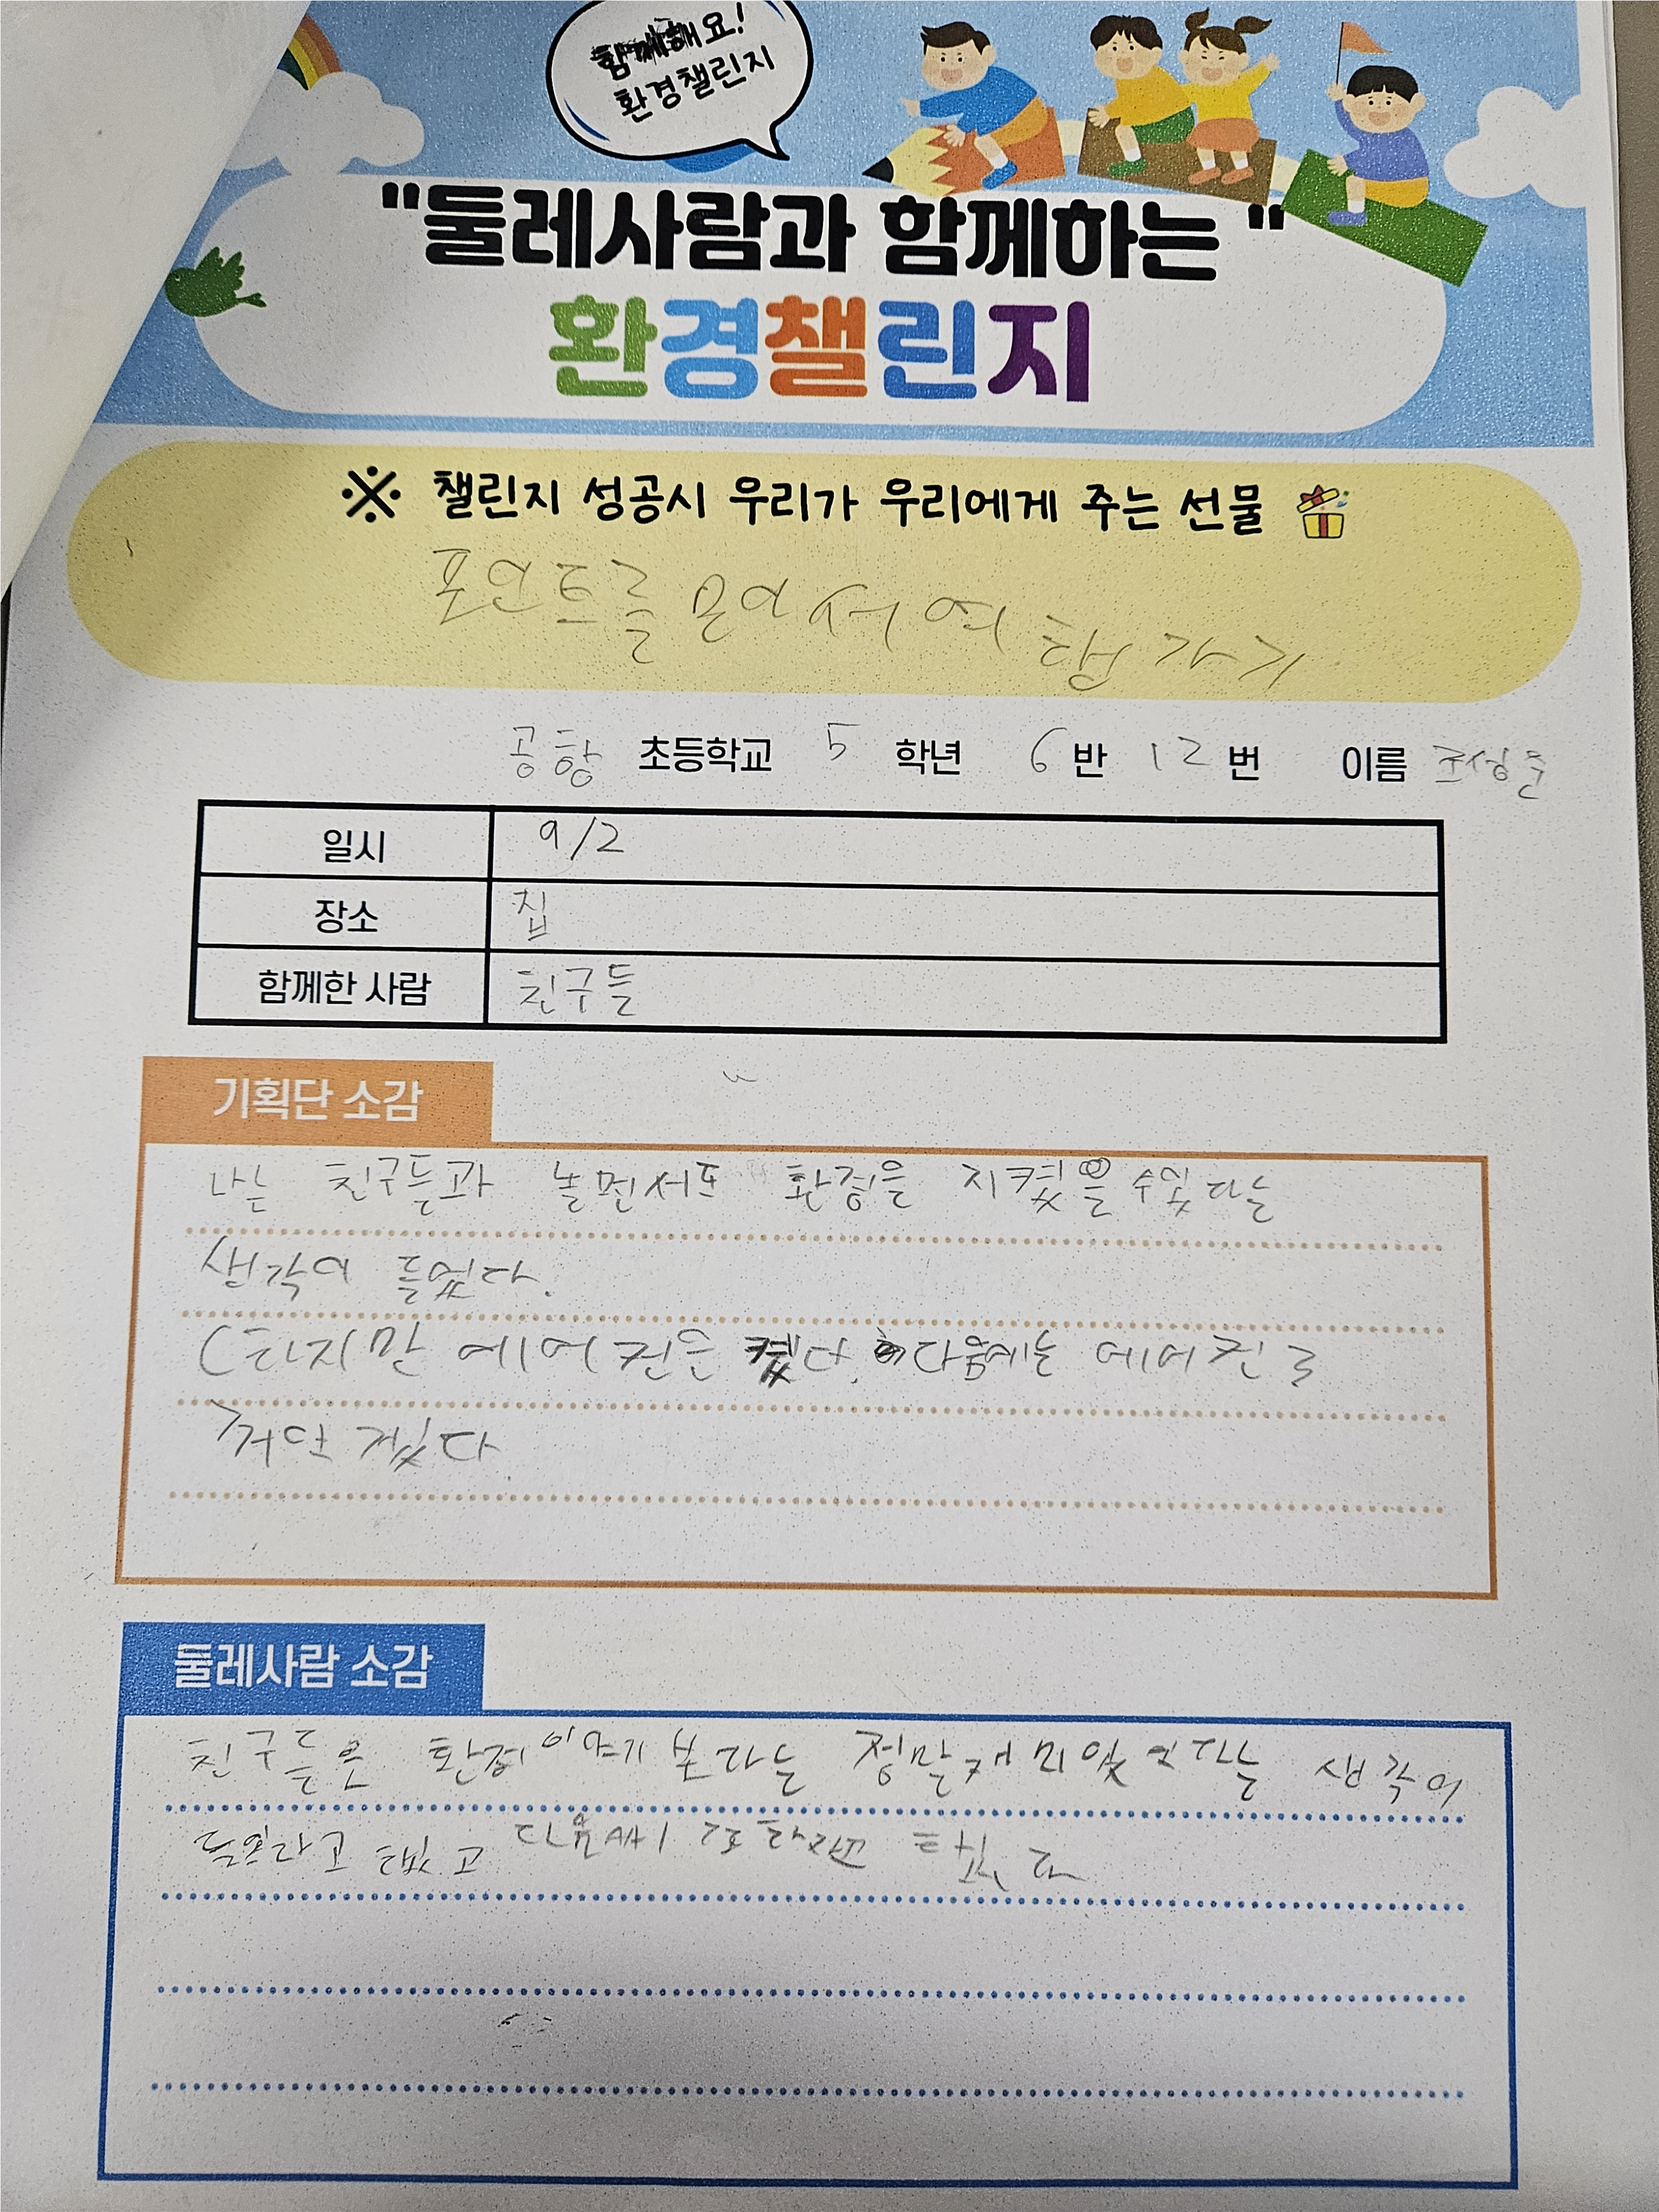 함께해요!
환경챌린지
"둘레사람과 함께하는"
환경챌린지
※ 챌린지 성공시 우리가 우리에게 주는 선물
포인트를 모아서 여행가기
공항 초등학교 5 학년 6 반 12 번 이름 조성준
일시 9/2
장소 집
함께한 사람 친구들
기획단 소감
나는 친구들과 놀면서도 환경을 지켰을 수있다는
생각이 들었다.
(하지만 에어컨은 켰다. 다음에는 에어컨도
꺼야 겠다
둘레사람 소감
친구들은 환경 이야기 보다는 정말 재미있었다는 생각이
다음에